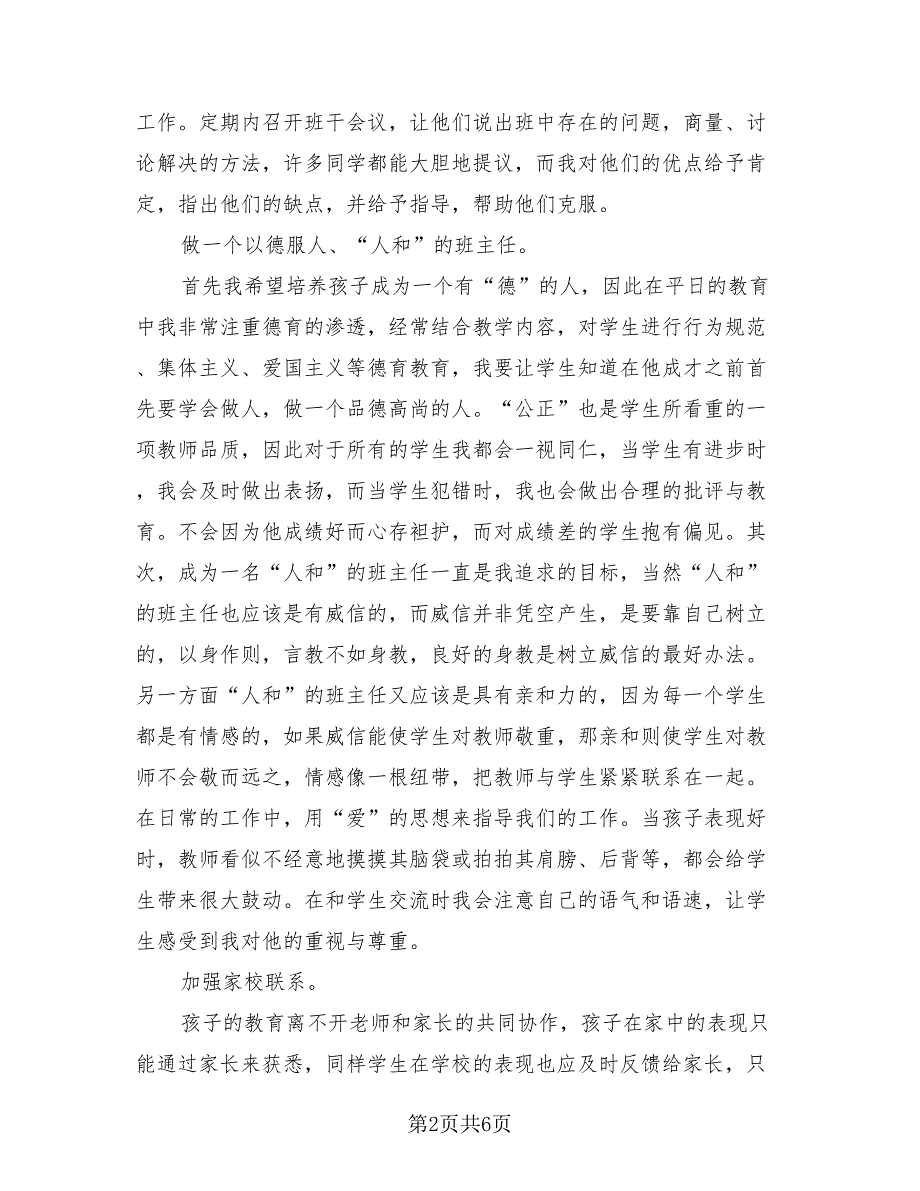 工作。定期内召开班干会议，让他们说出班中存在的问题，商量、讨
论解决的方法，许多同学都能大胆地提议，而我对他们的优点给予肯
定，指出他们的缺点，并给予指导，帮助他们克服。
做一个以德服人、“人和”的班主任。
首先我希望培养孩子成为一个有“德”的人，因此在平日的教育
中我非常注重德育的渗透，经常结合教学内容，对学生进行行为规范
、集体主义、爱国主义等德育教育，我要让学生知道在他成才之前首
先要学会做人，做一个品德高尚的人。“公正”也是学生所看重的一
项教师品质，因此对于所有的学生我都会一视同仁，当学生有进步时
，我会及时做出表扬，而当学生犯错时，我也会做出合理的批评与教
育。不会因为他成绩好而心存袒护，而对成绩差的学生抱有偏见。其
次，成为一名“人和”的班主任一直是我追求的目标，当然“人和”
的班主任也应该是有威信的，而威信并非凭空产生，是要靠自己树立
的，以身作则，言教不如身教，良好的身教是树立威信的最好办法。
另一方面“人和”的班主任又应该是具有亲和力的，因为每一个学生
都是有情感的，如果威信能使学生对教师敬重，那亲和则使学生对教
师不会敬而远之，情感像一根纽带，把教师与学生紧紧联系在一起。
在日常的工作中，用“爱”的思想来指导我们的工作。当孩子表现好
时，教师看似不经意地摸摸其脑袋或拍拍其肩膀、后背等，都会给学
生带来很大鼓动。在和学生交流时我会注意自己的语气和语速，让学
生感受到我对他的重视与尊重。
加强家校联系。
孩子的教育离不开老师和家长的共同协作，孩子在家中的表现只
能通过家长来获悉，同样学生在学校的表现也应及时反馈给家长，只
第2页共6页